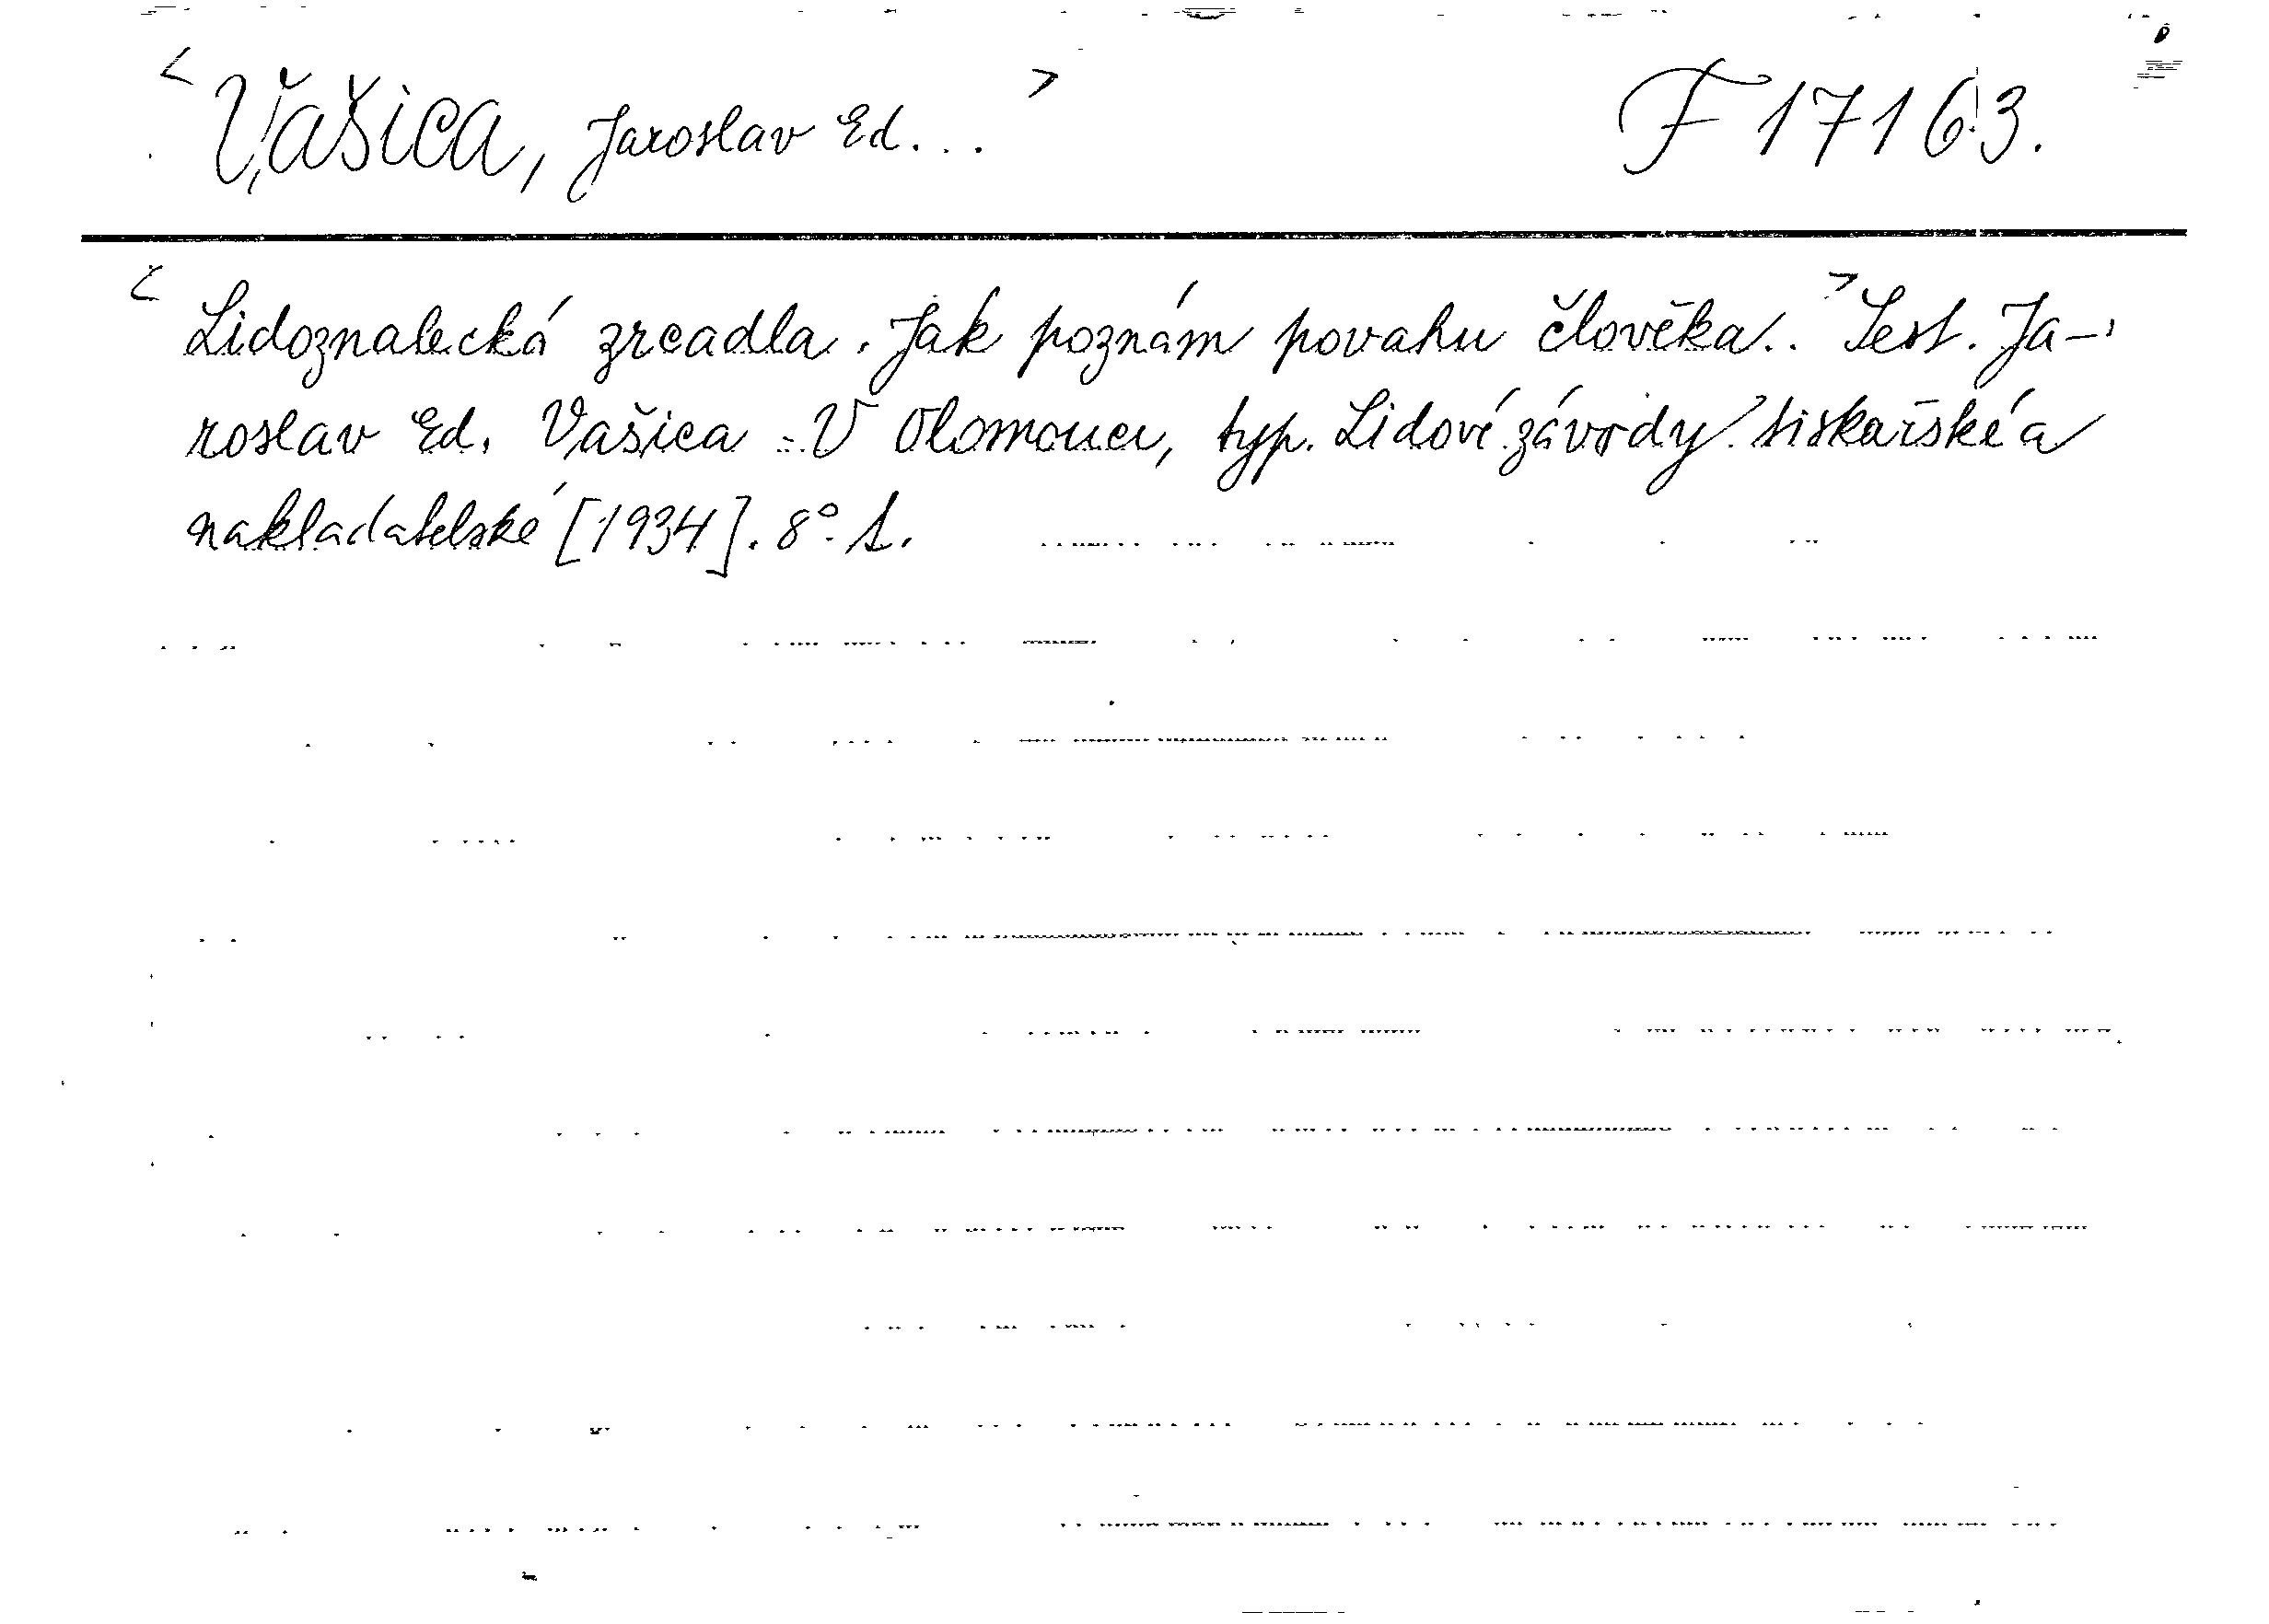 < Vašica, Jaroslav Ed... > F 17163.
< Lidoznalecká zrcadla. Jak poznám povahu člověka.. > Sest. Ja-
roslav Ed. Vašica. V Olomouci, typ. Lidové závody tiskařské a
nakladatelské [1934]. 8°. 1.